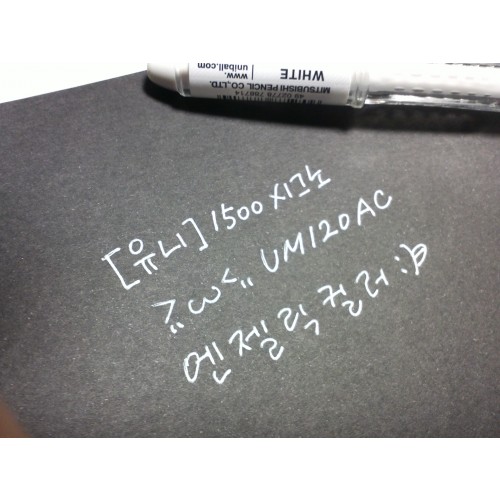 WHITE
www.
uniball.com
MITSUBISHI PENCIL CO.,LTD.
49 02778 758714
[유니] 1500 시그노
>"ω<" UM120AC
엔젤릭컬러:)